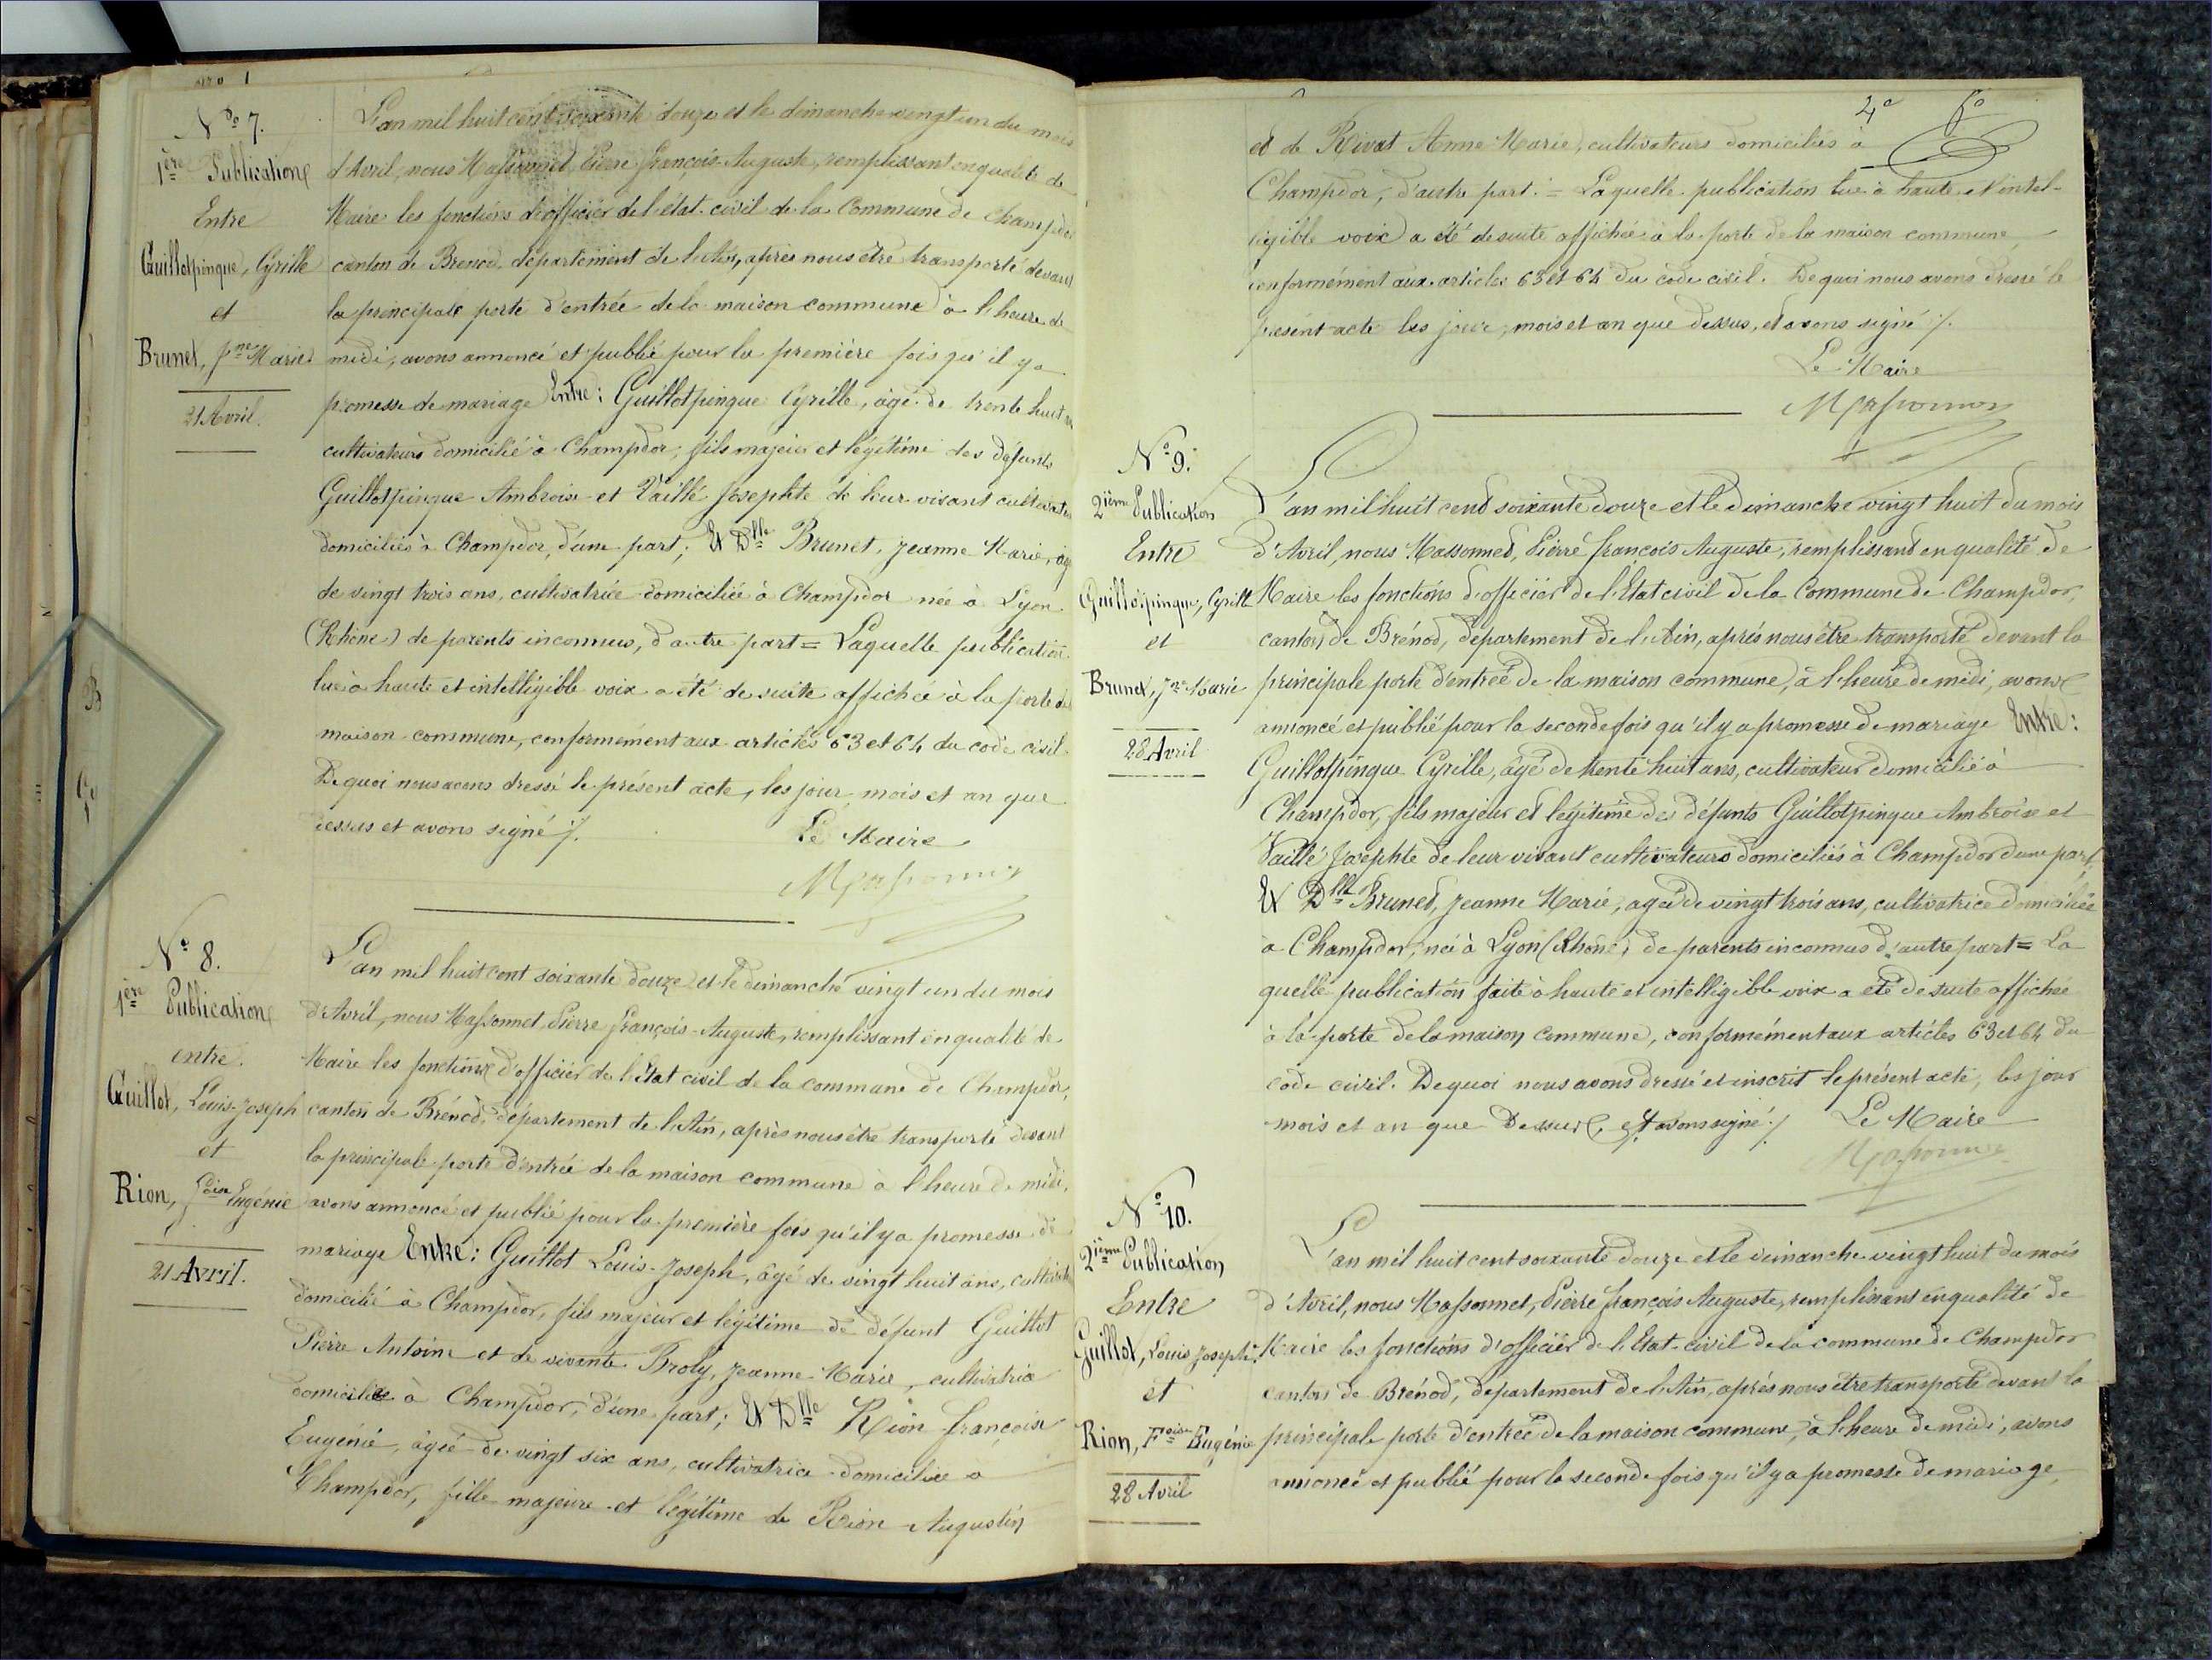 No 7.
1ère Publication
Entre
Guillotpinque, Cyrille
et
Brunet, Jne Marie
21 Avril.
L'an mil huit cent soixante douze et le dimanche vingt un du mois
d'Avril, nous Massonnet, Pierre François-Auguste, remplissant en qualité de
Maire les fonctions d'officier de l'état-civil de la Commune de Champdor
canton de Brénod, département de l'Ain, après nous être transporté devant
la principale porte d'entrée de la maison commune à l'heure de
midi, avons annoncé et publié pour la première fois qu'il y a
promesse de mariage Entre: Guillotpinque Cyrille, âgé de trente huit ans
cultivateur domicilié à Champdor, fils majeur et légitime des défunts
Guillotpinque Ambroise et Vaillé Josephte de leur vivant cultivateurs
domiciliés à Champdor, d'une part; Et Dlle Brunet, Jeanne Marie, âgée
de vingt trois ans, cultivatrice domiciliée à Champdor née à Lyon
(Rhône) de parents inconnus, d'autre part = Laquelle publication
lue à haute et intelligible voix a été de suite affichée à la porte de
maison commune, conformément aux articles 63 et 64 du code civil.
De quoi nous avons dressé le présent acte, les jour, mois et an que
dessus et avons signé ./.
Le Maire
Massonnet
No 8.
1ère Publication
entre
Guillot, Louis-Joseph
et
Rion, Foise Eugénie
21 Avril.
L'an mil huit cent soixante douze et le dimanche vingt un du mois
d'Avril, nous Massonnet, Pierre François-Auguste, remplissant en qualité de
Maire les fonctions d'officier de l'Etat civil de la commune de Champdor,
canton de Brénod, département de l'Ain, après nous être transporté devant
la principale porte d'entrée de la maison commune à l'heure de midi,
avons annoncé et publié pour la première fois qu'il y a promesse de
mariage Entre: Guillot Louis-Joseph, âgé de vingt huit ans, cultivateur
domicilié à Champdor, fils majeur et légitime de défunt Guillot
Pierre Antoine et de vivante Broly, Jeanne-Marie, cultivatrice
domiciliée à Champdor, d'une part; Et Dlle Rion Françoise
Eugénie, âgée de vingt six ans, cultivatrice domiciliée à
Champdor, fille majeure et légitime de Rion Augustin
4e fo
et de Rivat Anne Marie, cultivateurs domiciliés à
Champdor, d'autre part. = Laquelle publication lue à haute et intel-
ligible voix a été de suite affichée à la porte de la maison commune,
conformément aux articles 63 et 64 du code civil. De quoi nous avons dressé le
présent acte les jour, mois et an que dessus, et avons signé ./.
Le Maire
Massonnet
No 9.
2ième Publication
Entre
Guillotpinque, Cyrille
et
Brunet, Jne Marie
28 Avril
L'an mil huit cent soixante douze et le dimanche vingt huit du mois
d'Avril, nous Massonnet, Pierre François Auguste, remplissant en qualité de
Maire les fonctions d'officier de l'Etat civil de la Commune de Champdor,
canton de Brénod, département de l'Ain, après nous être transporté devant la
principale porte d'entrée de la maison commune, à l'heure de midi, avons
annoncé et publié pour la seconde fois qu'il y a promesse de mariage Entre:
Guillotpinque Cyrille, âgé de trente huit ans, cultivateur domicilié à
Champdor, fils majeur et légitime des défunts Guillotpinque Ambroise et
Vaillé Josephte de leur vivant cultivateurs domiciliés à Champdor d'une part,
Et Dlle Brunet, Jeanne Marie, agée de vingt trois ans, cultivatrice domiciliée
à Champdor, née à Lyon (Rhône) de parents inconnus d'autre part = La
quelle publication faite à haute et intelligible voix a été de suite affichée
à la porte de la maison commune, conformément aux articles 63 et 64 du
code civil. De quoi nous avons dressé et inscrit le présent acte, les jour
mois et an que dessus, et avons signé ./. Le Maire
Massonnet
No 10.
2ième Publication
Entre
Guillot, Louis Joseph
et
Rion, Foise Eugénie
28 Avril
L'an mil huit cent soixante douze et le dimanche vingt huit du mois
d'Avril, nous Massonnet, Pierre François Auguste, remplissant en qualité de
Maire les fonctions d'officier de l'Etat-civil de la commune de Champdor
canton de Brénod, département de l'Ain, après nous être transporté devant la
principale porte d'entrée de la maison commune, à l'heure de midi, avons
annoncé et publié pour la seconde fois qu'il y a promesse de mariage,